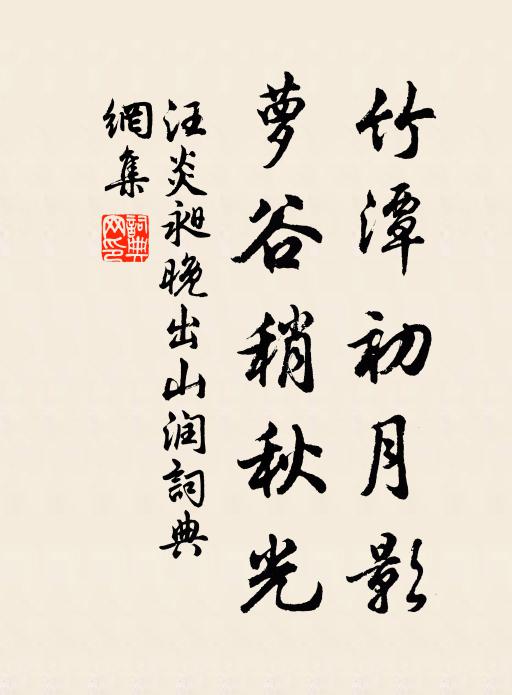 竹潭初月影
萝谷稍秋光
汪炎昶晚出山润詞典
網集
詞典
网印